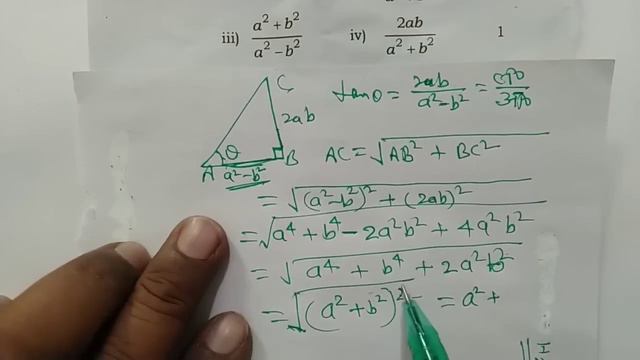 iii) (a² + b²)/(a² − b²) iv) 2ab/(a² + b²) 1
C
tanθ = 2ab/(a² − b²) =
2ab
θ
A B
a² − b²
AC = √(AB² + BC²)
= √((a² − b²)² + (2ab)²)
= √(a⁴ + b⁴ − 2a²b² + 4a²b²)
= √(a⁴ + b⁴ + 2a²b²)
= √((a² + b²)²) = a² +